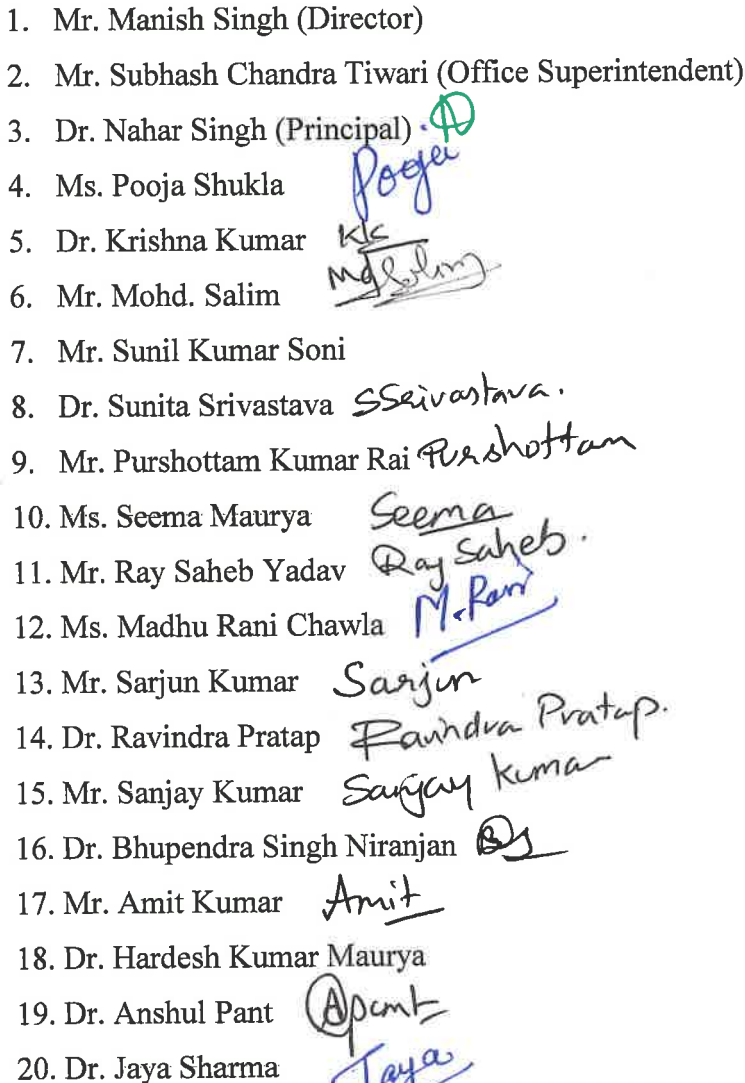 1. Mr. Manish Singh (Director)
2. Mr. Subhash Chandra Tiwari (Office Superintendent)
3. Dr. Nahar Singh (Principal)
4. Ms. Pooja Shukla Pooja
5. Dr. Krishna Kumar
6. Mr. Mohd. Salim Md Salim
7. Mr. Sunil Kumar Soni
8. Dr. Sunita Srivastava SSrivastava.
9. Mr. Purshottam Kumar Rai Purshottam
10. Ms. Seema Maurya Seema
11. Mr. Ray Saheb Yadav Ray Saheb.
12. Ms. Madhu Rani Chawla M. Rani
13. Mr. Sarjun Kumar Sarjun
14. Dr. Ravindra Pratap Ravindra Pratap.
15. Mr. Sanjay Kumar Sanjay Kumar
16. Dr. Bhupendra Singh Niranjan
17. Mr. Amit Kumar Amit
18. Dr. Hardesh Kumar Maurya
19. Dr. Anshul Pant Apant
20. Dr. Jaya Sharma Jaya